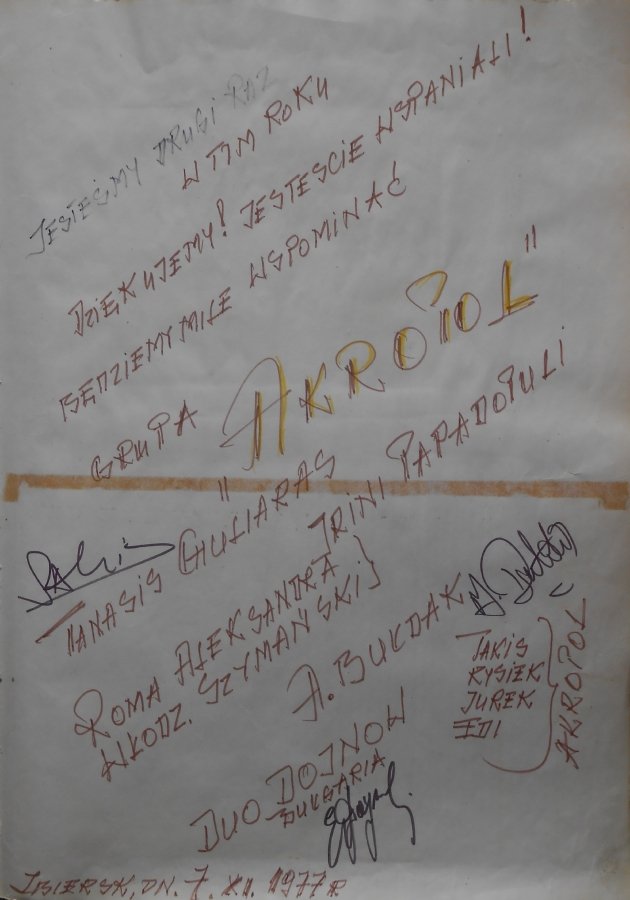 JESTEŚMY DRUGI RAZ
W TYM ROKU
DZIĘKUJEMY! JESTESCIE WSPANIALI!
BĘDZIEMY MILE WSPOMINAĆ
GRUPA "AKROPOL"
TANASIS GULIARAS
IRINI PAPADOPULI
ROMA ALEKSANDRA
WŁODZ. SZYMAŃSKI
A. BUŁDAK
TAKIS
RYSIEK
JUREK
EDI
AKROPOL
DUO DOJNOW
BUŁGARIA
DN. 7. XII. 1977 R